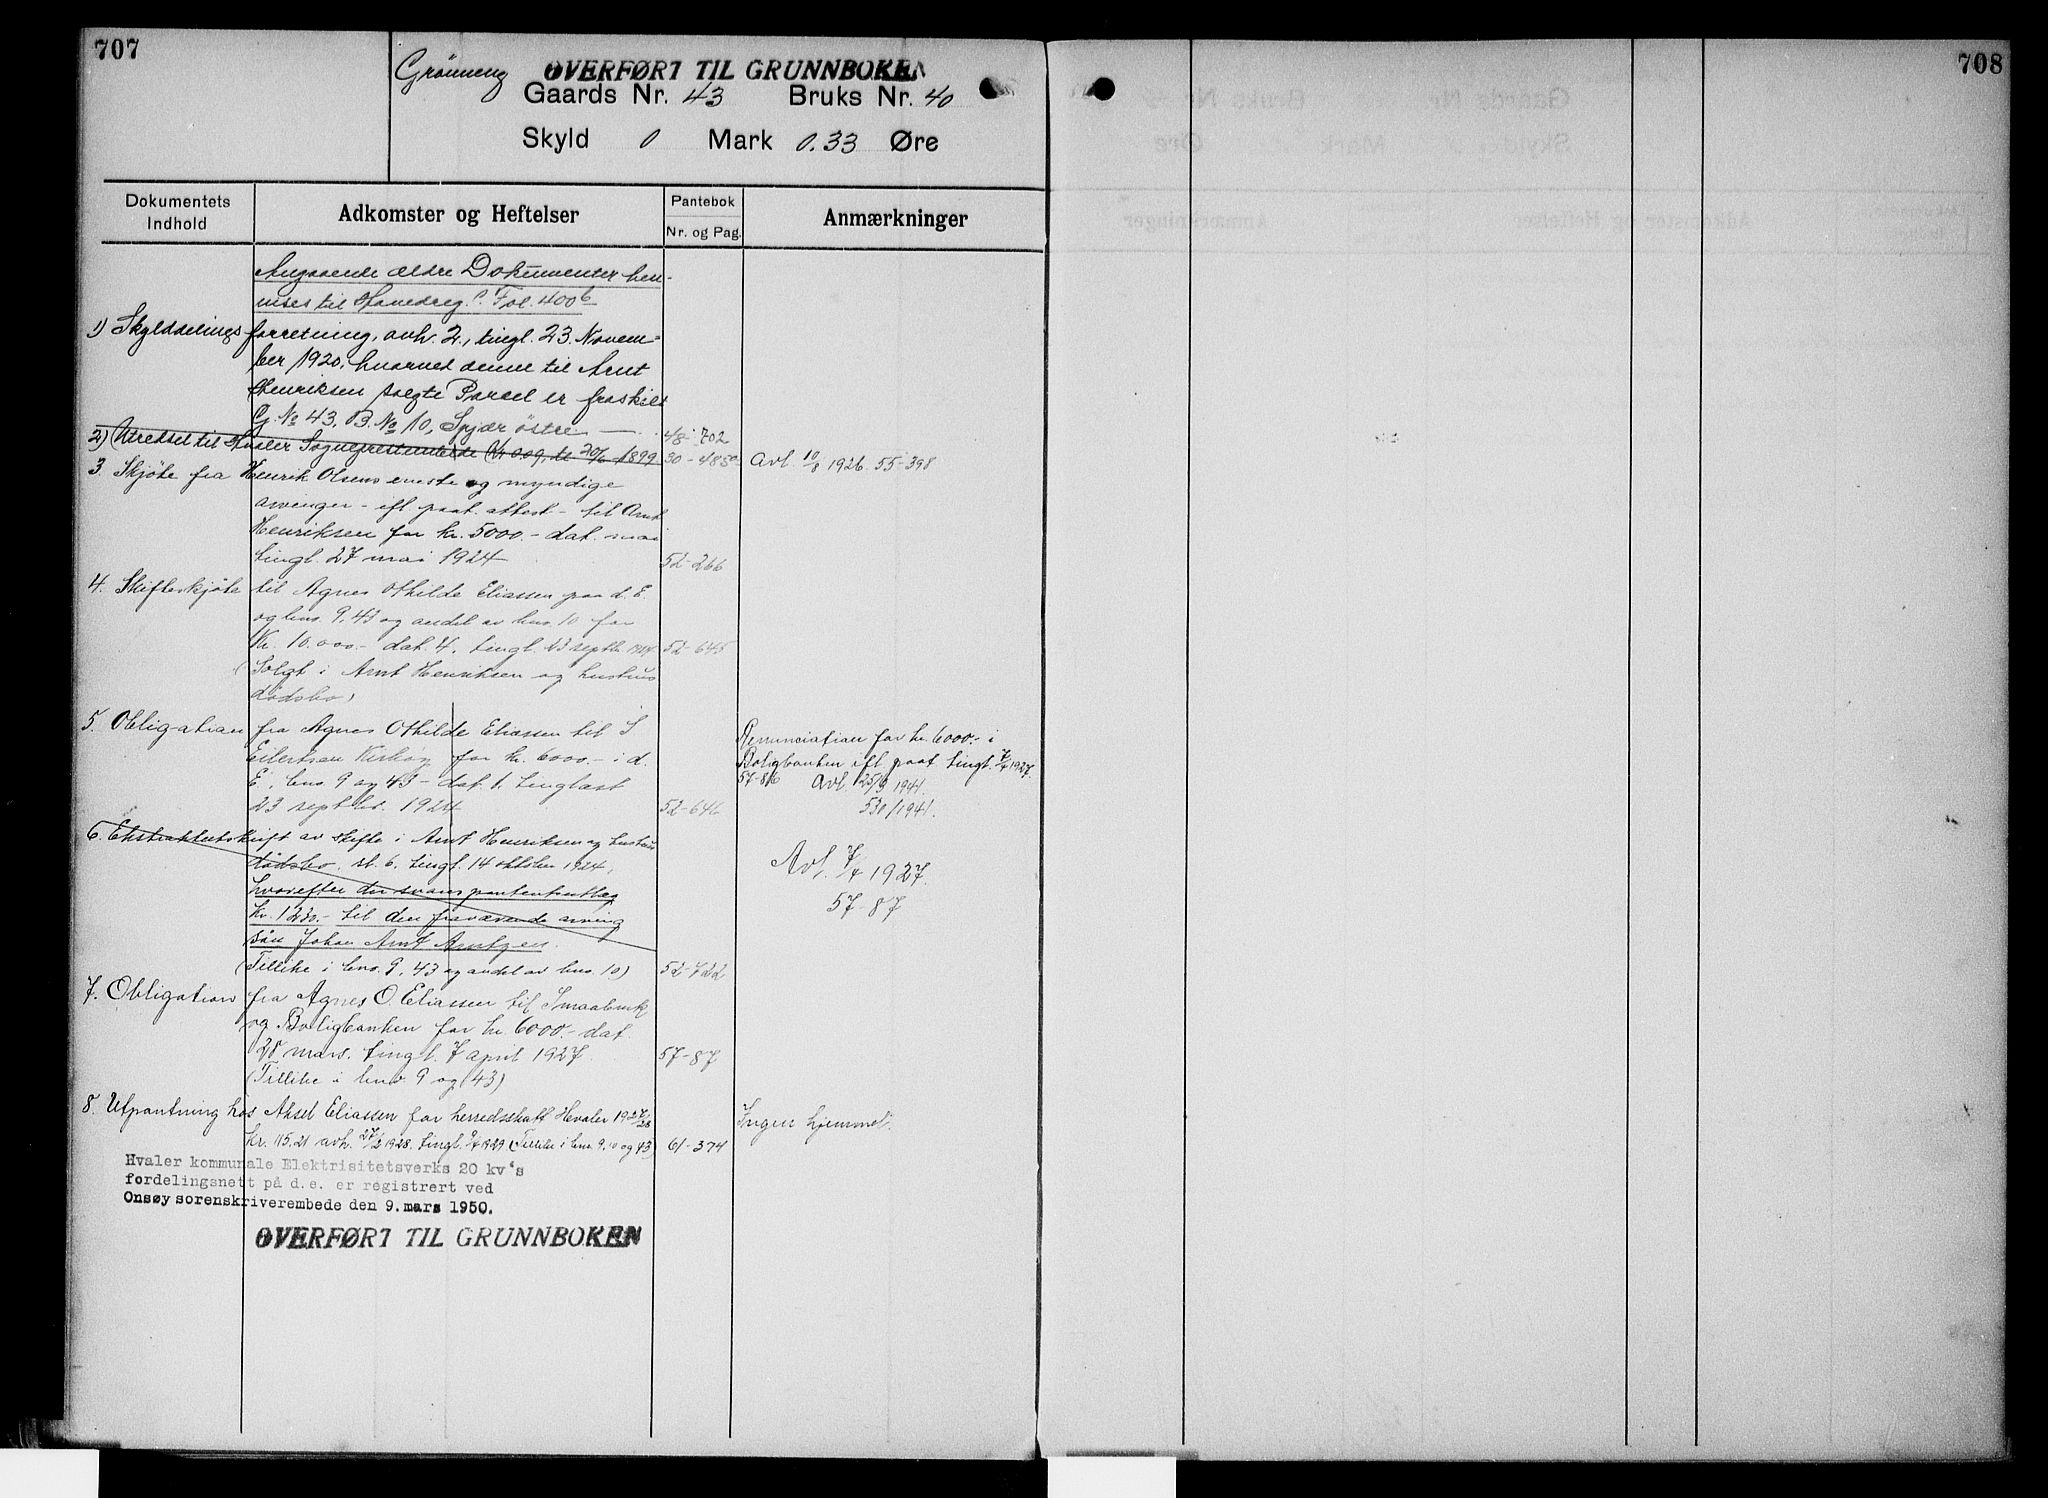 707
708
Grönneng
OVERFØRT TIL GRUNNBOKEN
Gaards Nr. 43 Bruks Nr. 40
Skyld 0 Mark 0.33 Øre
Dokumentets Indhold
Adkomster og Heftelser
Pantebok
Nr. og Pag.
Anmærkninger
Angaaende ældre Dokumenter hen-
vises til Hovedreg. Fol. 400b
1) Skylddelingsforretning, avh. 2., tingl. 23. Novem-
ber 1920, hvorved denne til Arnt
Henriksen solgte Parcel er fraskilt
G. No 43, B. No 10, Spjær östre — 48-702
2) Utredsel til Hvaler Sogneprestembede Kr 0.09, tl 20/6 1899 30-485 Avl. 10/8 1926. 55-398
3. Skjöte fra Henrik Olsens eneste og myndige
arvinger - efl. paat. attest - til Arnt
Henriksen for kr. 5000.- dat. mai
tingl. 27 mai 1924 52-266
4. Skifteskjöte til Agnes Othilde Eliassen paa d. E.
og bno. 9, 43 og andel av bno. 10 for
Kr. 10.000.- dat. 4. tingl. 23 septb. 1924 52-645
(Solgt i Arnt Henriksen og hustrus
dödsbo)
5. Obligation fra Agnes Othilde Eliassen til S
Eilertsen Kirköy for kr. 6000.- i d.
E., bno. 9 og 43 - dat. 1. tinglæst
23 septbr. 1924 52-646
Renunciation for kr. 6000.- i
Boligbanken ifl. paat tingl. 7/4 1927.
57-86 Avl. 25/9 1941.
530/1941.
6. Ekstraktutskrift av skifte i Arnt Henriksen og hustrus
dödsbo, sl. 6. tingl. 14 oktober 1924,
hvorefter der svares panteutlæg
Kr. 1220.- til den fraværende arving
sön Johan Arnt Arntzen.
(Tillike i bno. 9, 43 og andel av bno. 10) 52-722
Avl. 7/4 1927.
57-87
7. Obligation fra Agnes O. Eliassen til Smaabruk
og Boligbanken for kr. 6000.- dat.
28 mars. tingl. 7 april 1927 57-87
(Tillike i bno. 9 og 43)
8. Utpantning hos Aksel Eliassen for herredsskatt Hvaler 1927/28
Kr. 115.21 avh. 27/2 1928. tingl. 9/4 1929 (Tillike i bno. 9, 10 og 43) 61-374
Ingen hjemmel.
Hvaler kommunale Elektrisitetsverks 20 kv's
fordelingsnett på d.e. er registrert ved
Onsøy sorenskriverembede den 9. mars 1950.
OVERFØRT TIL GRUNNBOKEN